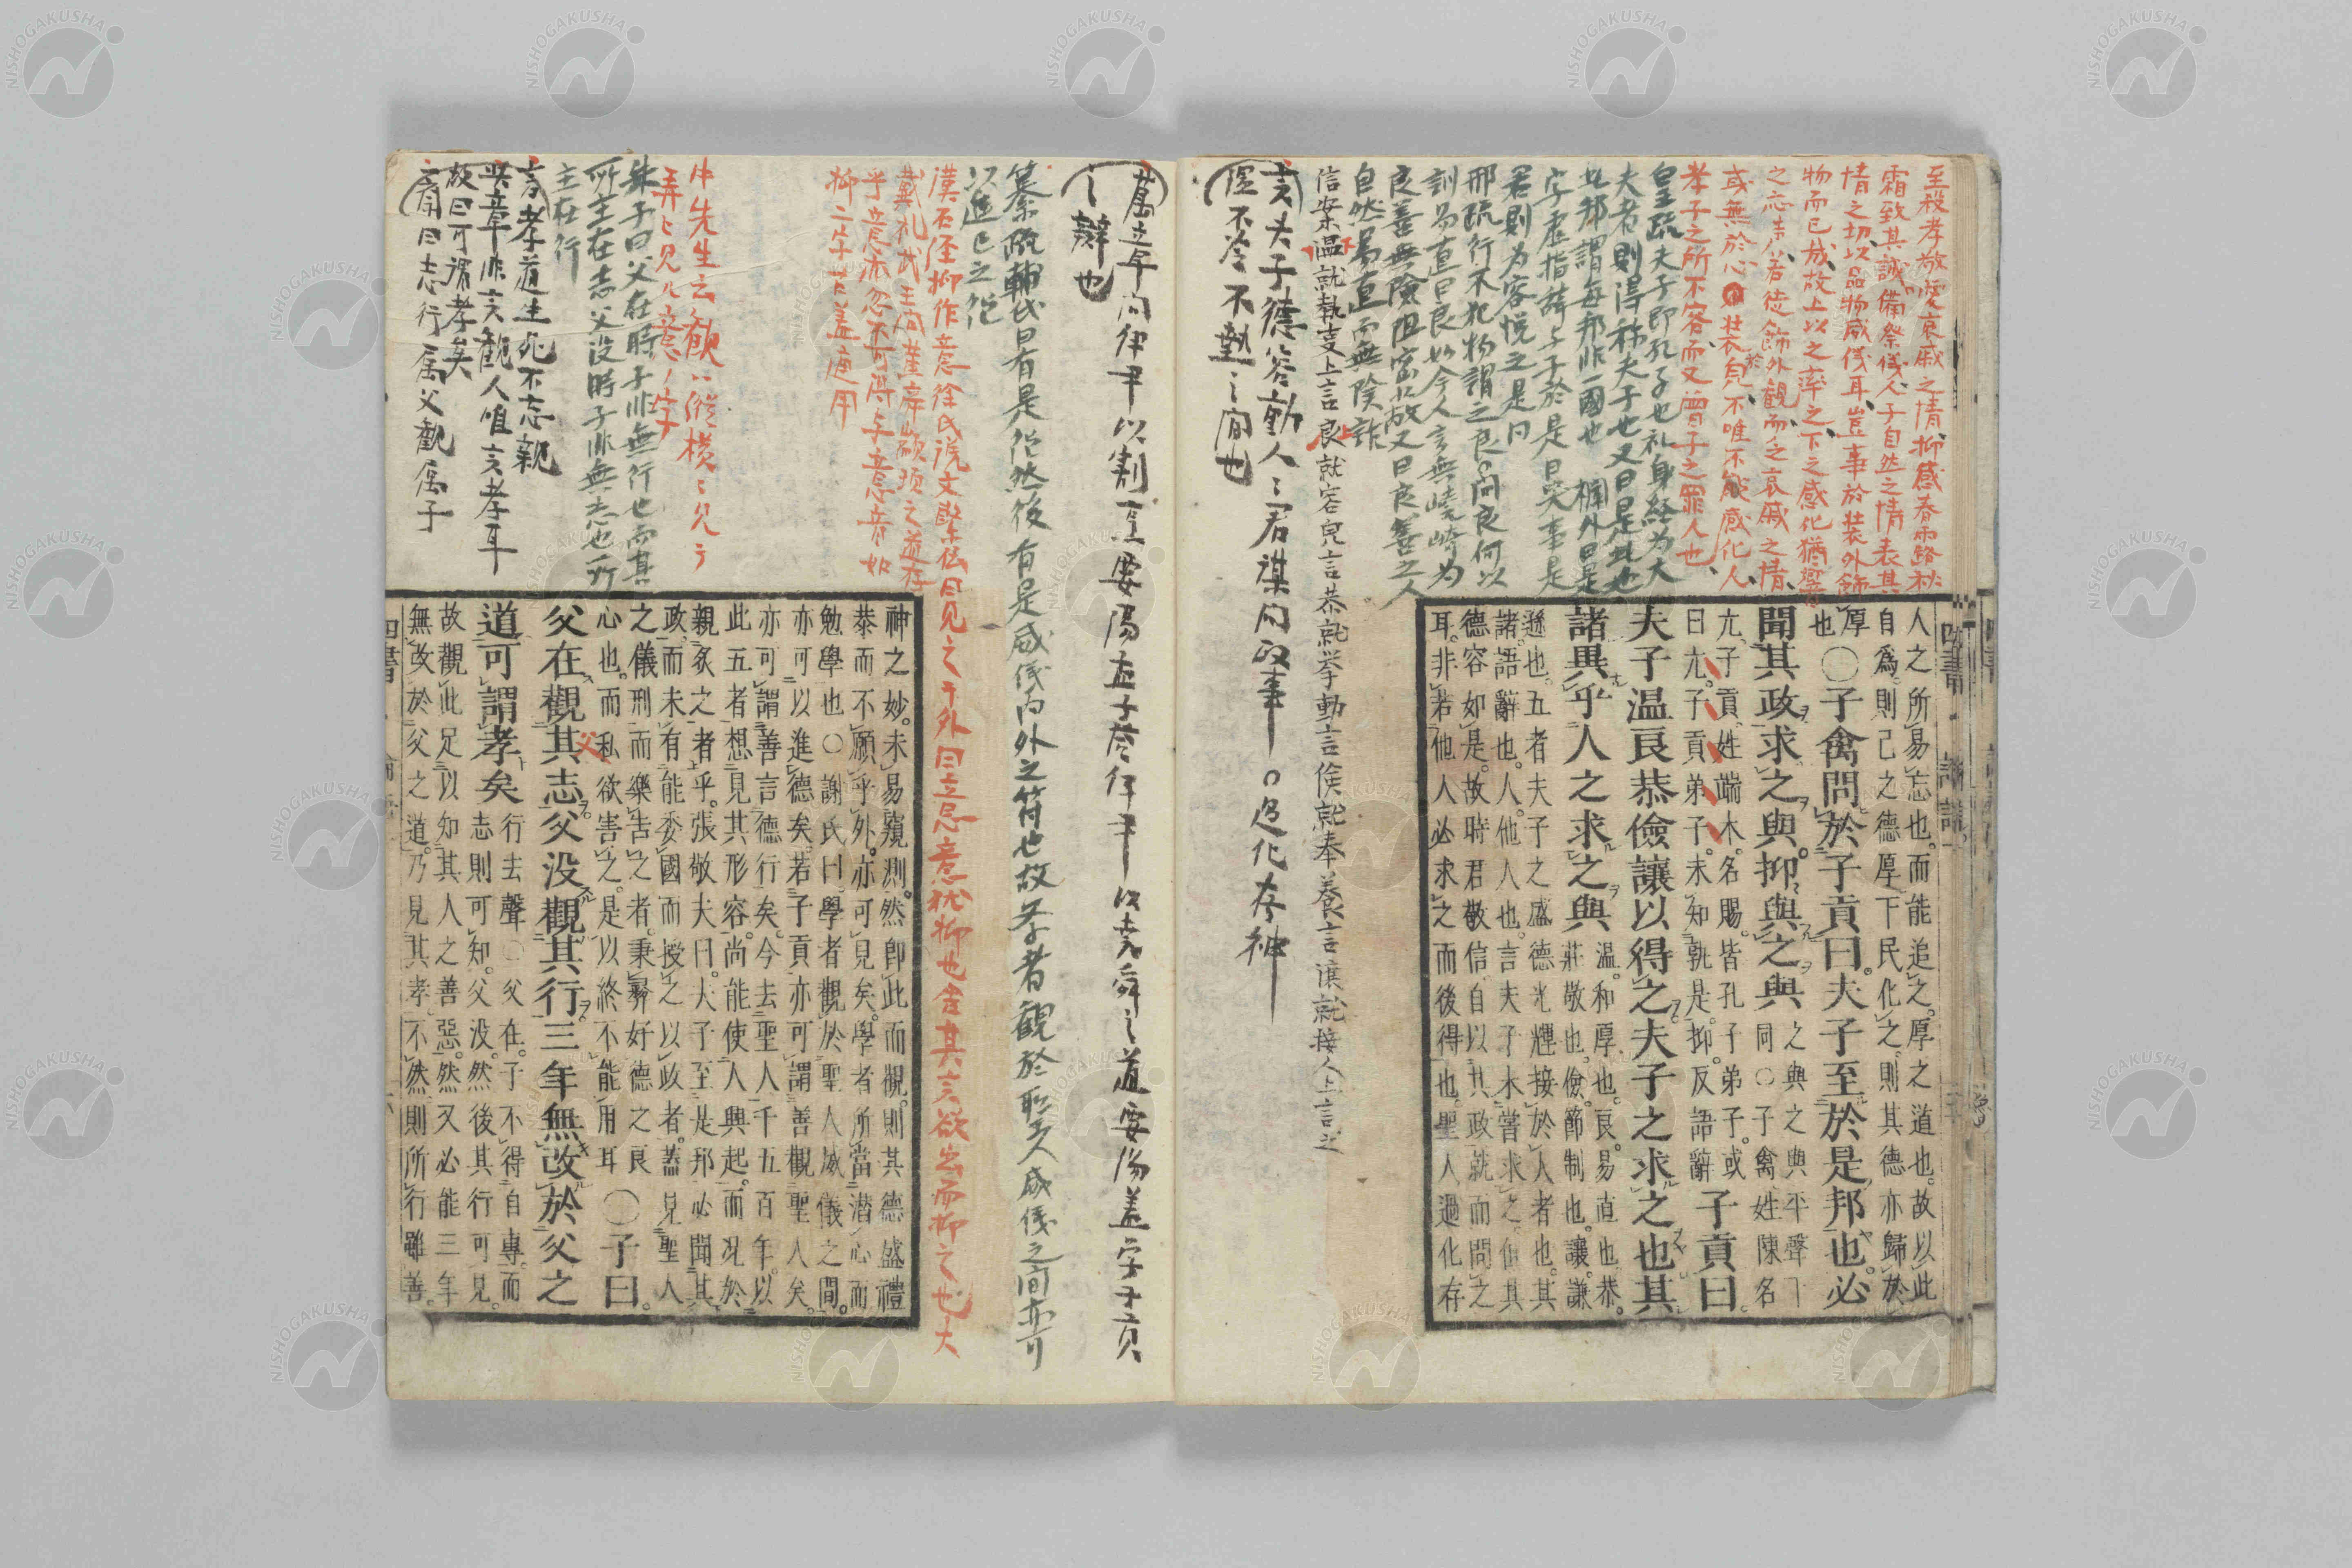 至殺孝敬愛哀戚之情抑感春雨露秋
霜致其誠備祭儀人子自然之情表其
情之切以品物威儀耳豈事於裝外飾
物而已哉故上以之率之下之感化猶響
之応声若徒飾外観而乏哀戚之情
或無於心以装皃不唯不能感化人
孝子之所不容而又曽子之罪人也
皇疏夫子即孔子也礼身経为大
夫者則得称夫子也又曰是此也
此邦謂毎邦非一國也 欄外曰是
字虚指諸子子於是日哭事是
君則为容悦之是同
邢疏行不犯物謂之良問良何以
訓易直曰良如今人言無嶢崎为
良善無險阻密故又曰良善之人
自然易直而無險詐
信案温就執支上言良就容皃言恭就挙動言儉就奉養言讓就接人上言之
言夫子德容動人人君謀問政事 過化存神
經不冷不熱之間也
人之所易忘也。而能追之。厚之道也。故以此
自爲。則己之德厚。下民化之。則其德亦歸於
厚也
○子禽問於子貢曰。夫子至於是邦也。必
聞其政求之與。抑與之與
之與之與平聲下
同○子禽姓陳名
亢。子貢。姓端木。名賜。皆孔子弟子。或
曰亢。子貢弟子。未知孰是。抑。反語辭
子貢曰。
夫子温良恭儉讓以得之夫子之求之也其
諸異乎人之求之與
温。和厚也。良。易直也。恭。
莊敬也。儉。節制也。讓。謙
遜也。五者夫子之盛德光輝接於人者也。其
諸。語辭也。人。他人也。言夫子未嘗求之。但其
德容如是。故時君敬信。自以其政就而問之
耳。非若他人必求之而後得也。聖人過化存
萬章問伊尹以割烹要湯孟子荅伊尹以尭舜之道要湯盖字子貢
之辭也
纂疏輔氏曰有是德然後有是威儀内外之符也故学者觀於聖人威儀之間亦可
以進己之德
漢石経抑作意徐氏説文繋伝曰見之于外曰立忌意枕抑也舎其言欲出而抑之也大
戴礼武王問黄帝顓頊之道存
乎意亦忽不可得乎意音如
抑二字古盖通用
中先生云観ハ縱横ニ見テ
弄ヒ見ル意ノ字
朱子曰父在時子非無行也而其
所主在志父没時子非無志也所
主在行
言孝道生死不忘親
此章非言觀人唯言孝耳
故曰可謂孝矣
或曰志行属父觀属子
神之妙。未易窺測。然即此而觀。則其德盛禮
恭而不願乎外。亦可見矣。學者所當潜心而
勉學也○謝氏曰。學者觀於聖人威儀之間。
亦可以進德矣。若子貢亦可謂善觀聖人矣。
亦可謂善言德行矣。今去聖人千五百年。以
此五者想見其形容。尚能使人興起。而況於
親炙之者乎。張敬夫曰。夫子至是邦必聞其
政。而未有能委國而授之以政者。蓋見聖人
之儀刑而樂告之者。秉彝好德之良
心也。而私欲害之。是以終不能用耳
○子曰。
父在觀其志父没觀其行三年無改於父之
父
道可謂孝矣
行去聲○父在。子不得自專。而
志則可知。父没。然後其行可見。
故觀此足以知其人之善惡。然又必能三年
無改於父之道。乃見其孝。不然則所行雖善。